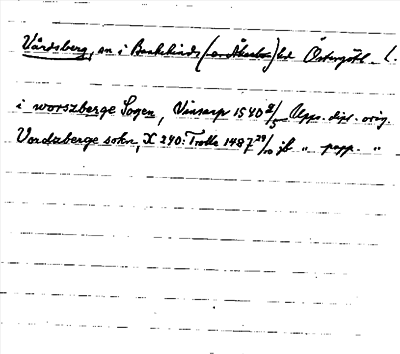 Vårdsberg, sn i Bankekinds (o. Åkerbo) hd Östergötl. l.
i worszberge Sogen, Vinsarp 1540 2/5 Upps. dipl. orig.
Vordzberge sokn, X 240: Trolle 1487 29/10 jb " papp. "